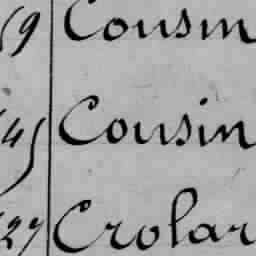 69 Cousin
45 Cousin
27 Crolar